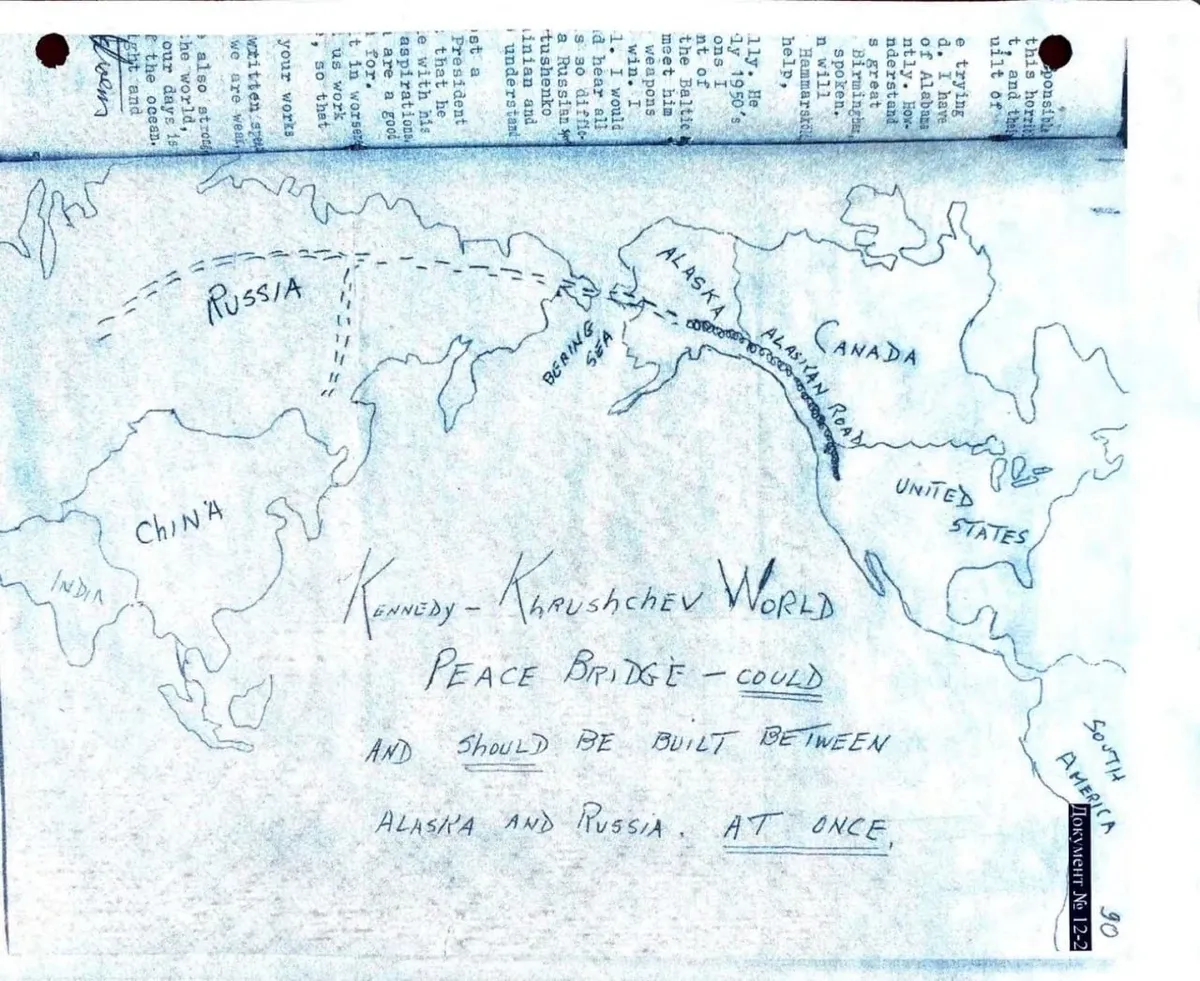 sponsible
this horri
t, and the
uilt of
e trying
d. I have
of Alabama
ntly. How-
nderstand
s great
Birmingham
spoken.
n will
Hammarskö
help,
lly. He
ly 1950's
ons I
nt of
the Baltic
meet him
weapons
win. I
l. I would
d hear all
s so diffic
a Russian
tushenko
inian and
understand
st a
President
that he
e with his
aspirations
are a good
for.
t in worsen
us work
, so that
your works
written
we are
also stron
he world,
our days is
the ocean.
ght and
RUSSIA
ALASKA
BERING
SEA
ALASKAN ROAD
CANADA
UNITED
STATES
CHINA
INDIA
KENNEDY - KHRUSHCHEV WORLD
PEACE BRIDGE - COULD
AND SHOULD BE BUILT BETWEEN
ALASKA AND RUSSIA. AT ONCE.
SOUTH
AMERICA
Документ № 12-2
90